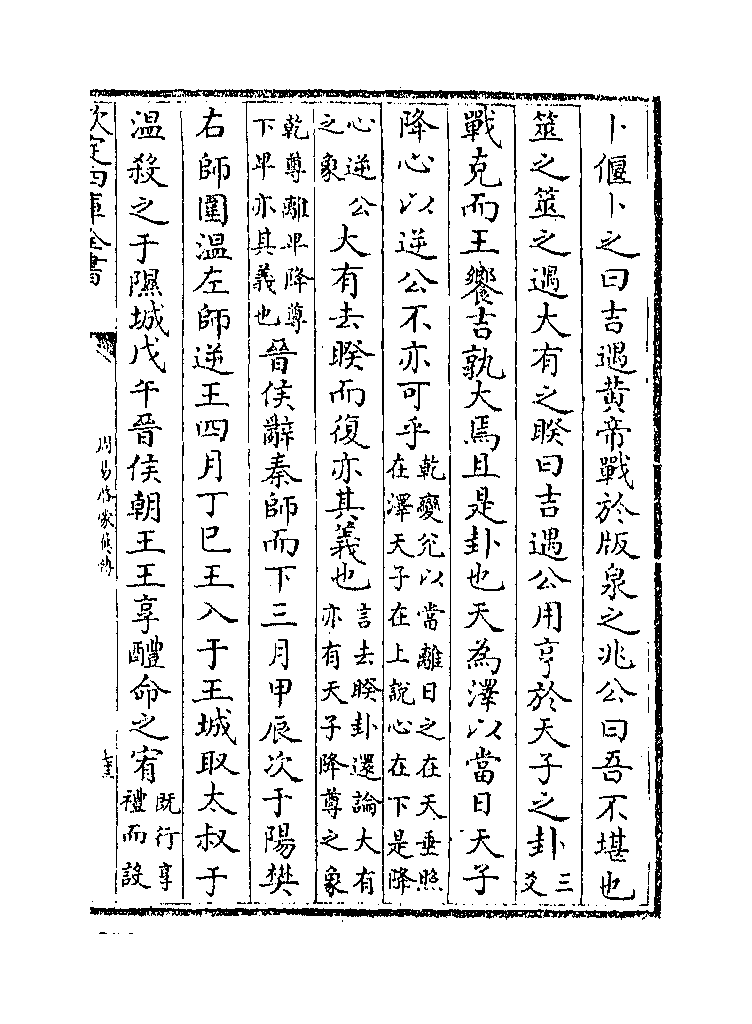 卜偃卜之曰吉遇黄帝戰於版泉之兆公曰吾不堪也
筮之筮之遇大有之睽曰吉遇公用亨於天子之卦三爻
戰克而王饗吉孰大焉且是卦也天為澤以當日天子
降心以逆公不亦可乎乾變兌以當離日之在天垂照在澤天子在上說心在下是降
心逆公之象大有去睽而復亦其義也言去睽卦還論大有亦有天子降尊之象
乾尊離卑降尊下卑亦其義也晉侯辭秦師而下三月甲辰次于陽樊
右師圍溫左師逆王四月丁巳王入于王城取太叔于
溫殺之于隰城戊午晉侯朝王王享醴命之宥既行享禮而設
欽定四庫全書